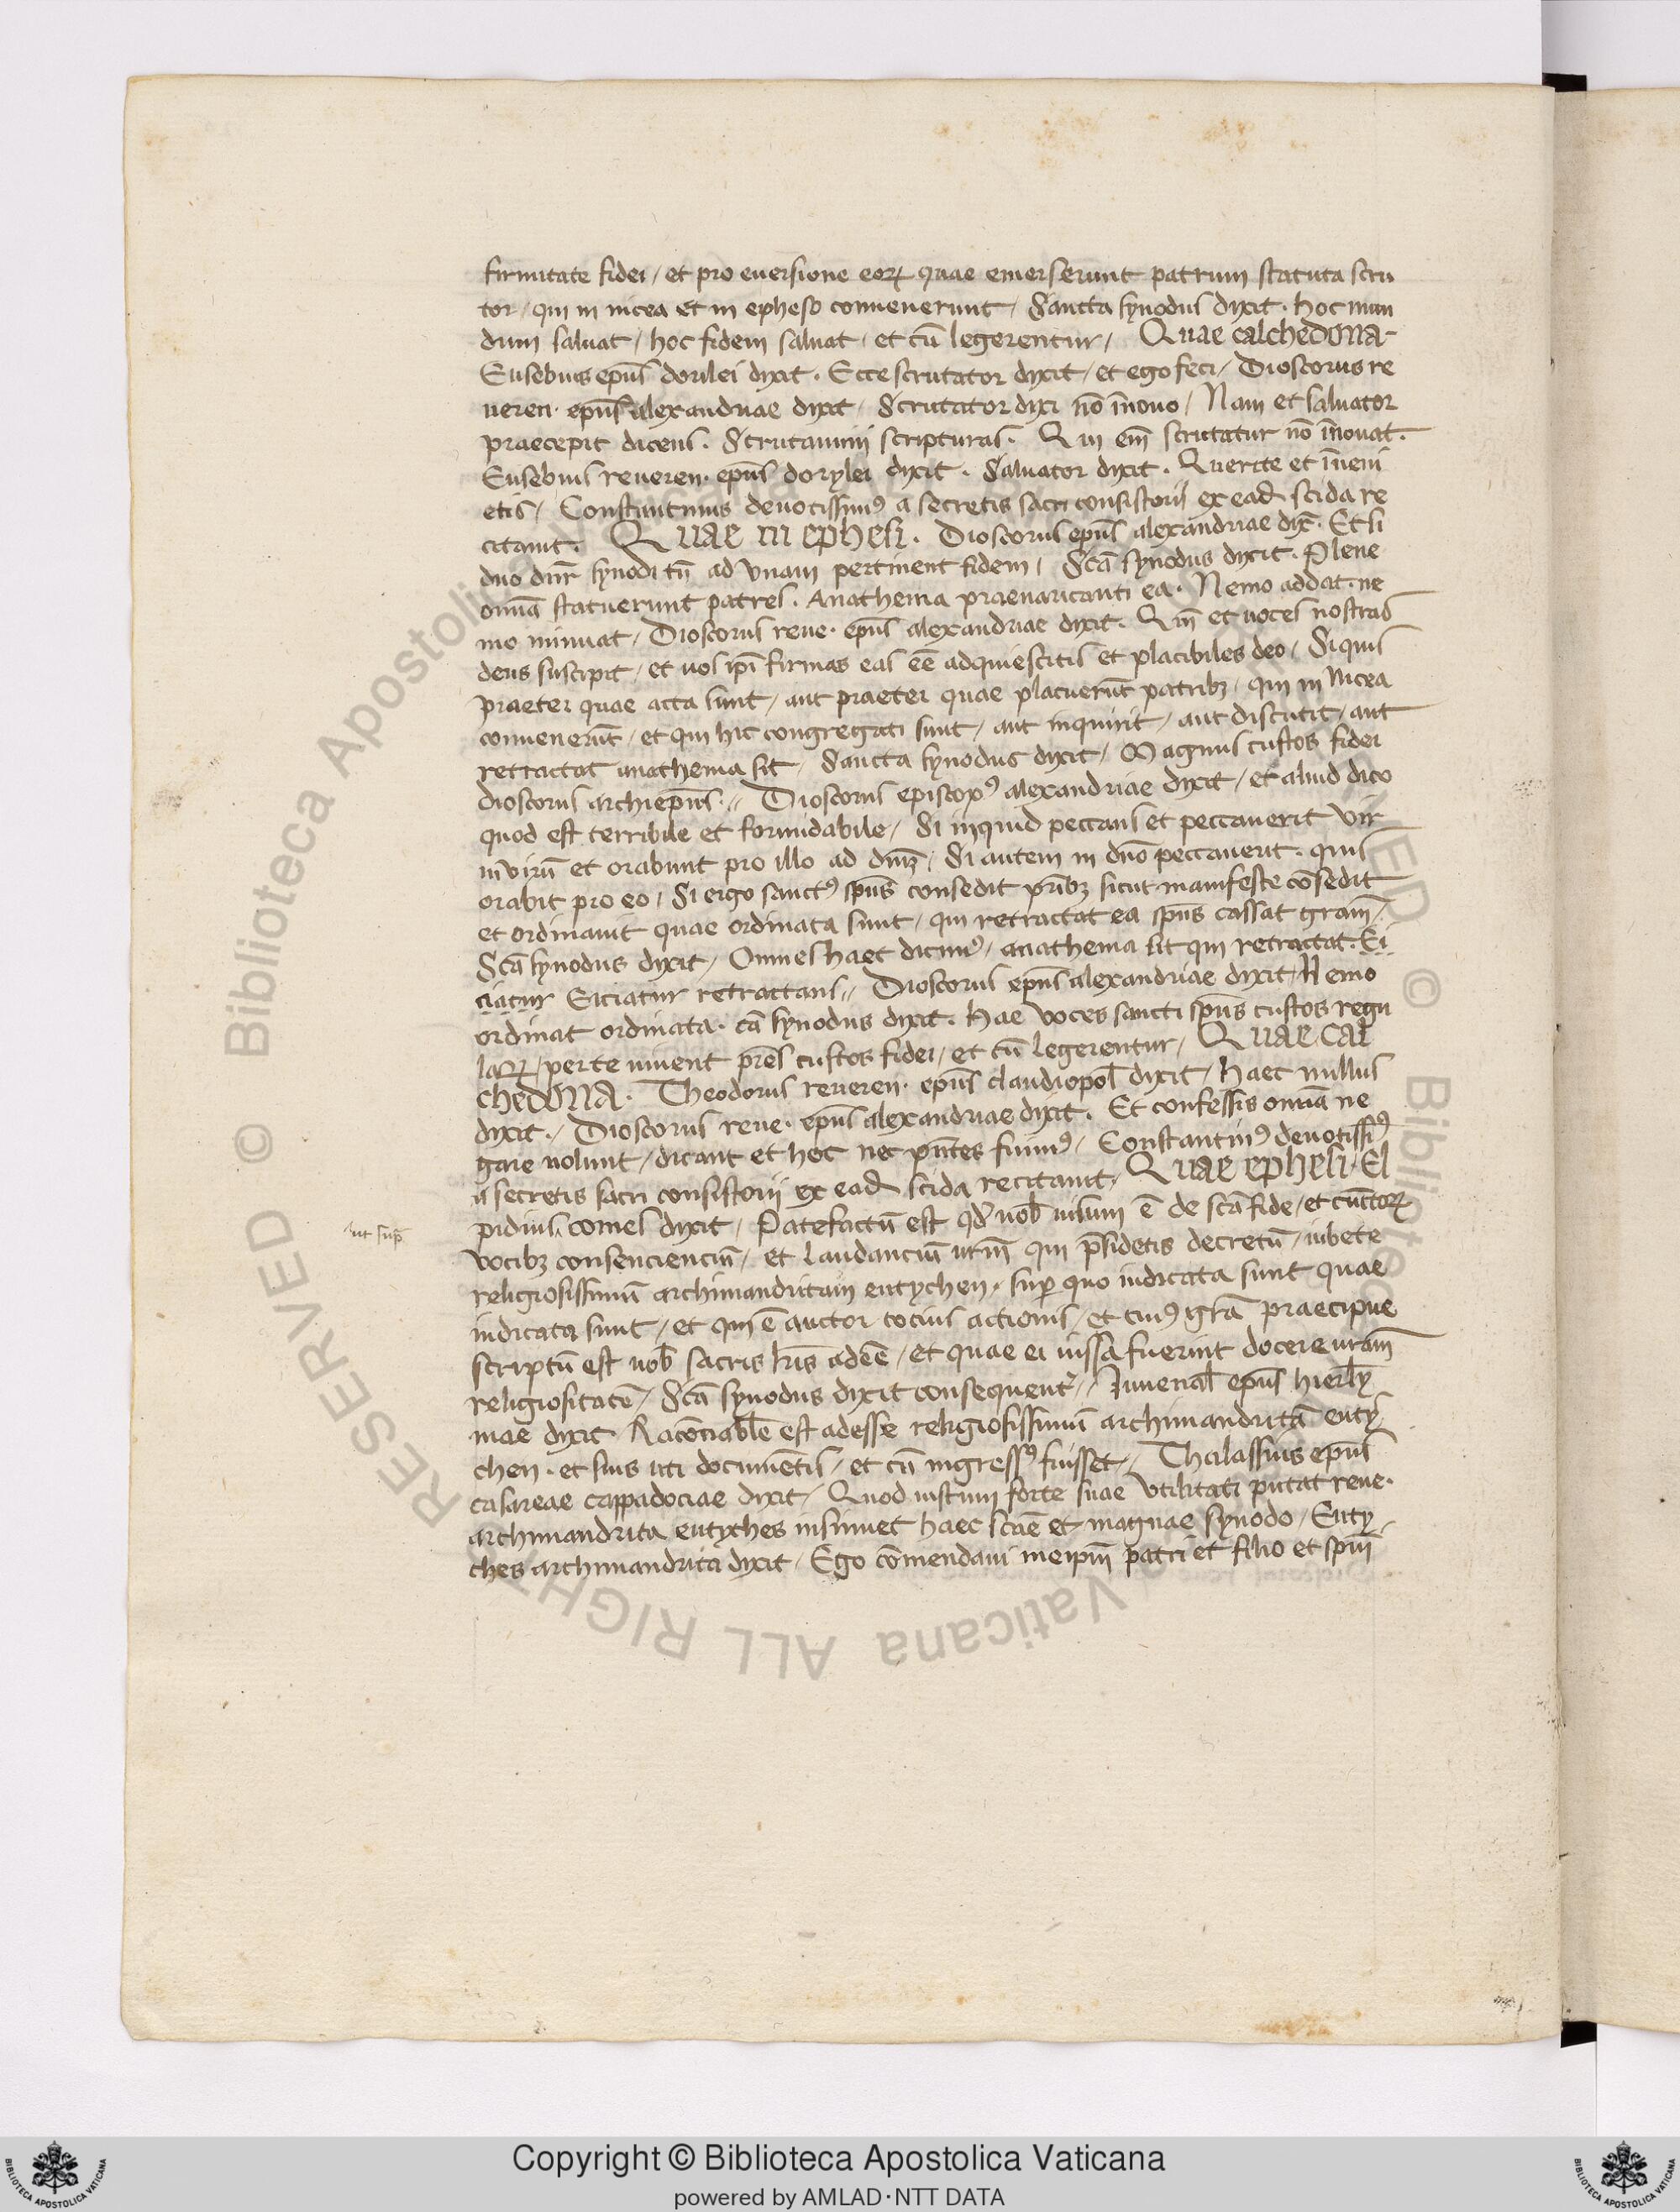 firmitate fidei / et pro euersione eoꝝ quae emerserunt patrum statuta scru
tor / qui in nicea et in epheso conuenerunt / Sancta synodus dixit · hoc mun
dum saluat / hoc fidem saluat / et cū legerentur / Quae calchedona
Eusebius ep̄us dorilei dixit · Ecce scrutator dixit / et ego feci / Dioscorus re
ueren · ep̄us alexandriae dixit / Scrutator dixi nō īnouo / Nam et saluator
praecepit dicens · Scrutamini scripturas · Qui em̄ scrutatur nō īnouat ·
Eusebius reueren · ep̄us dorylei dixit · Saluator dixit · Querite et īueni
etis / Constantinus deuotissimꝰ a secretis sacri consistorii ex ead scida re
citauit · Quae in ephesi · Dioscorus ep̄us alexandriae dix̄ · Et si
duo dnr̄ synodi tn̄ ad vnam pertinent fidem / Scā synodus dixit · Plene
omīa statuerunt patres · Anathema praeuaricanti ea · Nemo addat · ne
mo minuat / Dioscorus reue · ep̄us alexandriae dixit · Qm̄ et uoces nostras
deus suscipit / et uos ip̄i firmas eas eē adquiescitis et placibiles deo / Si quis
praeter quae acta sunt / aut praeter quae placuerūt patribꝫ / qui in Nicea
conuenerūt / et qui hic congregati sunt / aut inquirit / aut discutit / aut
retractat anathema sit / Sancta synodus dixit / Magnus custos fidei
dioscorus archiep̄us · // Dioscorus episcopꝰ alexandriae dixit / et aliud dico
quod est terribile et formidabile / Si inquid peccans et peccauerit vir
in virū et orabunt pro illo ad dnm̄ / Si autem in dn̄o peccauerit · quis
orabit pro eo / Si ergo sanctꝰ sp̄us consedit pr̄ibꝫ sicut manifeste cōsedit
et ordinauit quae ordinata sunt / qui retractat ea sp̄us cassat gram̄ /
Scā synodus dixit / Omnes haec dicimꝰ / anathema sit qui retractat · Ei
ciatur Eiciatur retractans // Dioscorus ep̄us alexandriae dixit / Nemo
ordinat ordinata · cā synodus dixit · Hae voces sancti sp̄us custos regu
laꝝ / per te uiuent pr̄es custos fidei / et cū legerentur / Quae cal
chedona · Theodorus reueren · ep̄us claudiopol̄ dixit / haec nullus
dixit · / Dioscorus reue · ep̄us alexandriae dixit · Et confessis omīa ne
gare uolunt / dicant et hoc nec pn̄tes fuimꝰ / Constantinꝰ deuotissiꝰ
a secretis sacri consistorii ex ead scida recitauit / Quae ephesi / El
pidius comes dixit / Patefactū est qd uob̄ uisum ē de scā fide / et cunctoꝝ
ut sup̄
vocibꝫ consenciencium̄ / et laudanciūm urm̄ qui p̄sidetis decretū / iubete
religiosissimū archimandritam eutychen / sup quo iudicata sunt quae
iudicata sunt / et quis ē auctor tocius actionis / et cuiꝰ grā praecipue
scriptū est uob̄ sacris lr̄is adeē / et quae ei iussa fuerint docere uram̄
religiositatē / Scā synodus dixit consequentr̄ // Iuuenal̄ ep̄us hierl̄y
mae dixit Racōnabl̄e est adesse religiosissimū archimandritā euty
chen · et suis uti documētis / et cū ingressꝰ fuisset / Thalassius ep̄us
casareae cappadociae dixit / Quod iustum forte suae vtilitati putat reue ·
archimandrita eutyches insinuet haec scāe et magnae synodo / Euty
ches archimandrita dixit / Ego cōmendaui meip̄m patri et filio et sp̄ui